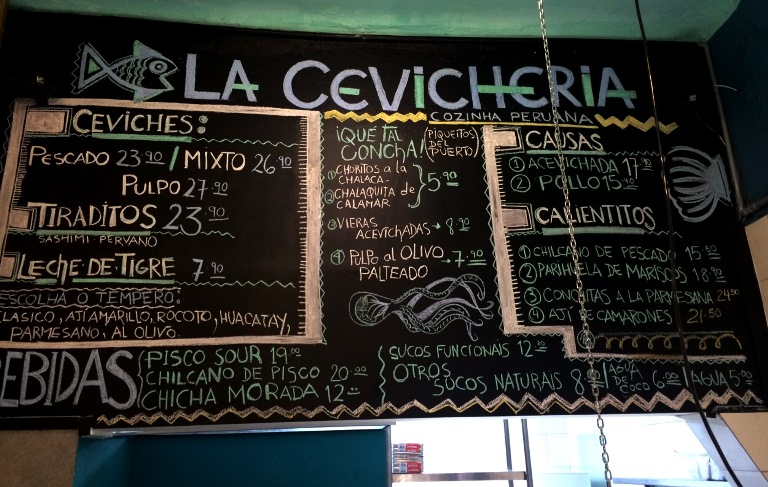 LA CEVICHERIA
COZINHA PERUANA
CEVICHES:
PESCADO 23.90 / MIXTO 26.90
PULPO 27.90
TIRADITOS 23.90
SASHIMI PERUANO
LECHE DE TIGRE 7.90
ESCOLHA O TEMPERO:
CLASICO, AJI AMARILLO, ROCOTO, HUACATAY,
PARMESANO, AL OLIVO.
¡QUE TAL CONCHA! (PIQUEITOS DEL PUERTO)
① CHORITOS A LA CHALACA
② CHALAQUITA de CALAMAR } 5.90
③ VIEIRAS ACEVICHADAS → 8.90
④ PULPO al OLIVO PALTEADO → 7.90
CAUSAS
① ACEVICHADA 17.90
② POLLO 15.90
CALIENTITOS
① CHILCANO DE PESCADO 15.50
② PARIHUELA DE MARISCOS 18.90
③ CONCHITAS A LA PARMESANA 24.50
④ AJI DE CAMARONES 21.50
BEBIDAS
PISCO SOUR 19.00
CHILCANO DE PISCO 20.00
CHICHA MORADA 12.00
SUCOS FUNCIONAIS 12.00
OTROS SUCOS NATURAIS 8.00 / AGUA DE COCO 6.00 / AGUA 5.00